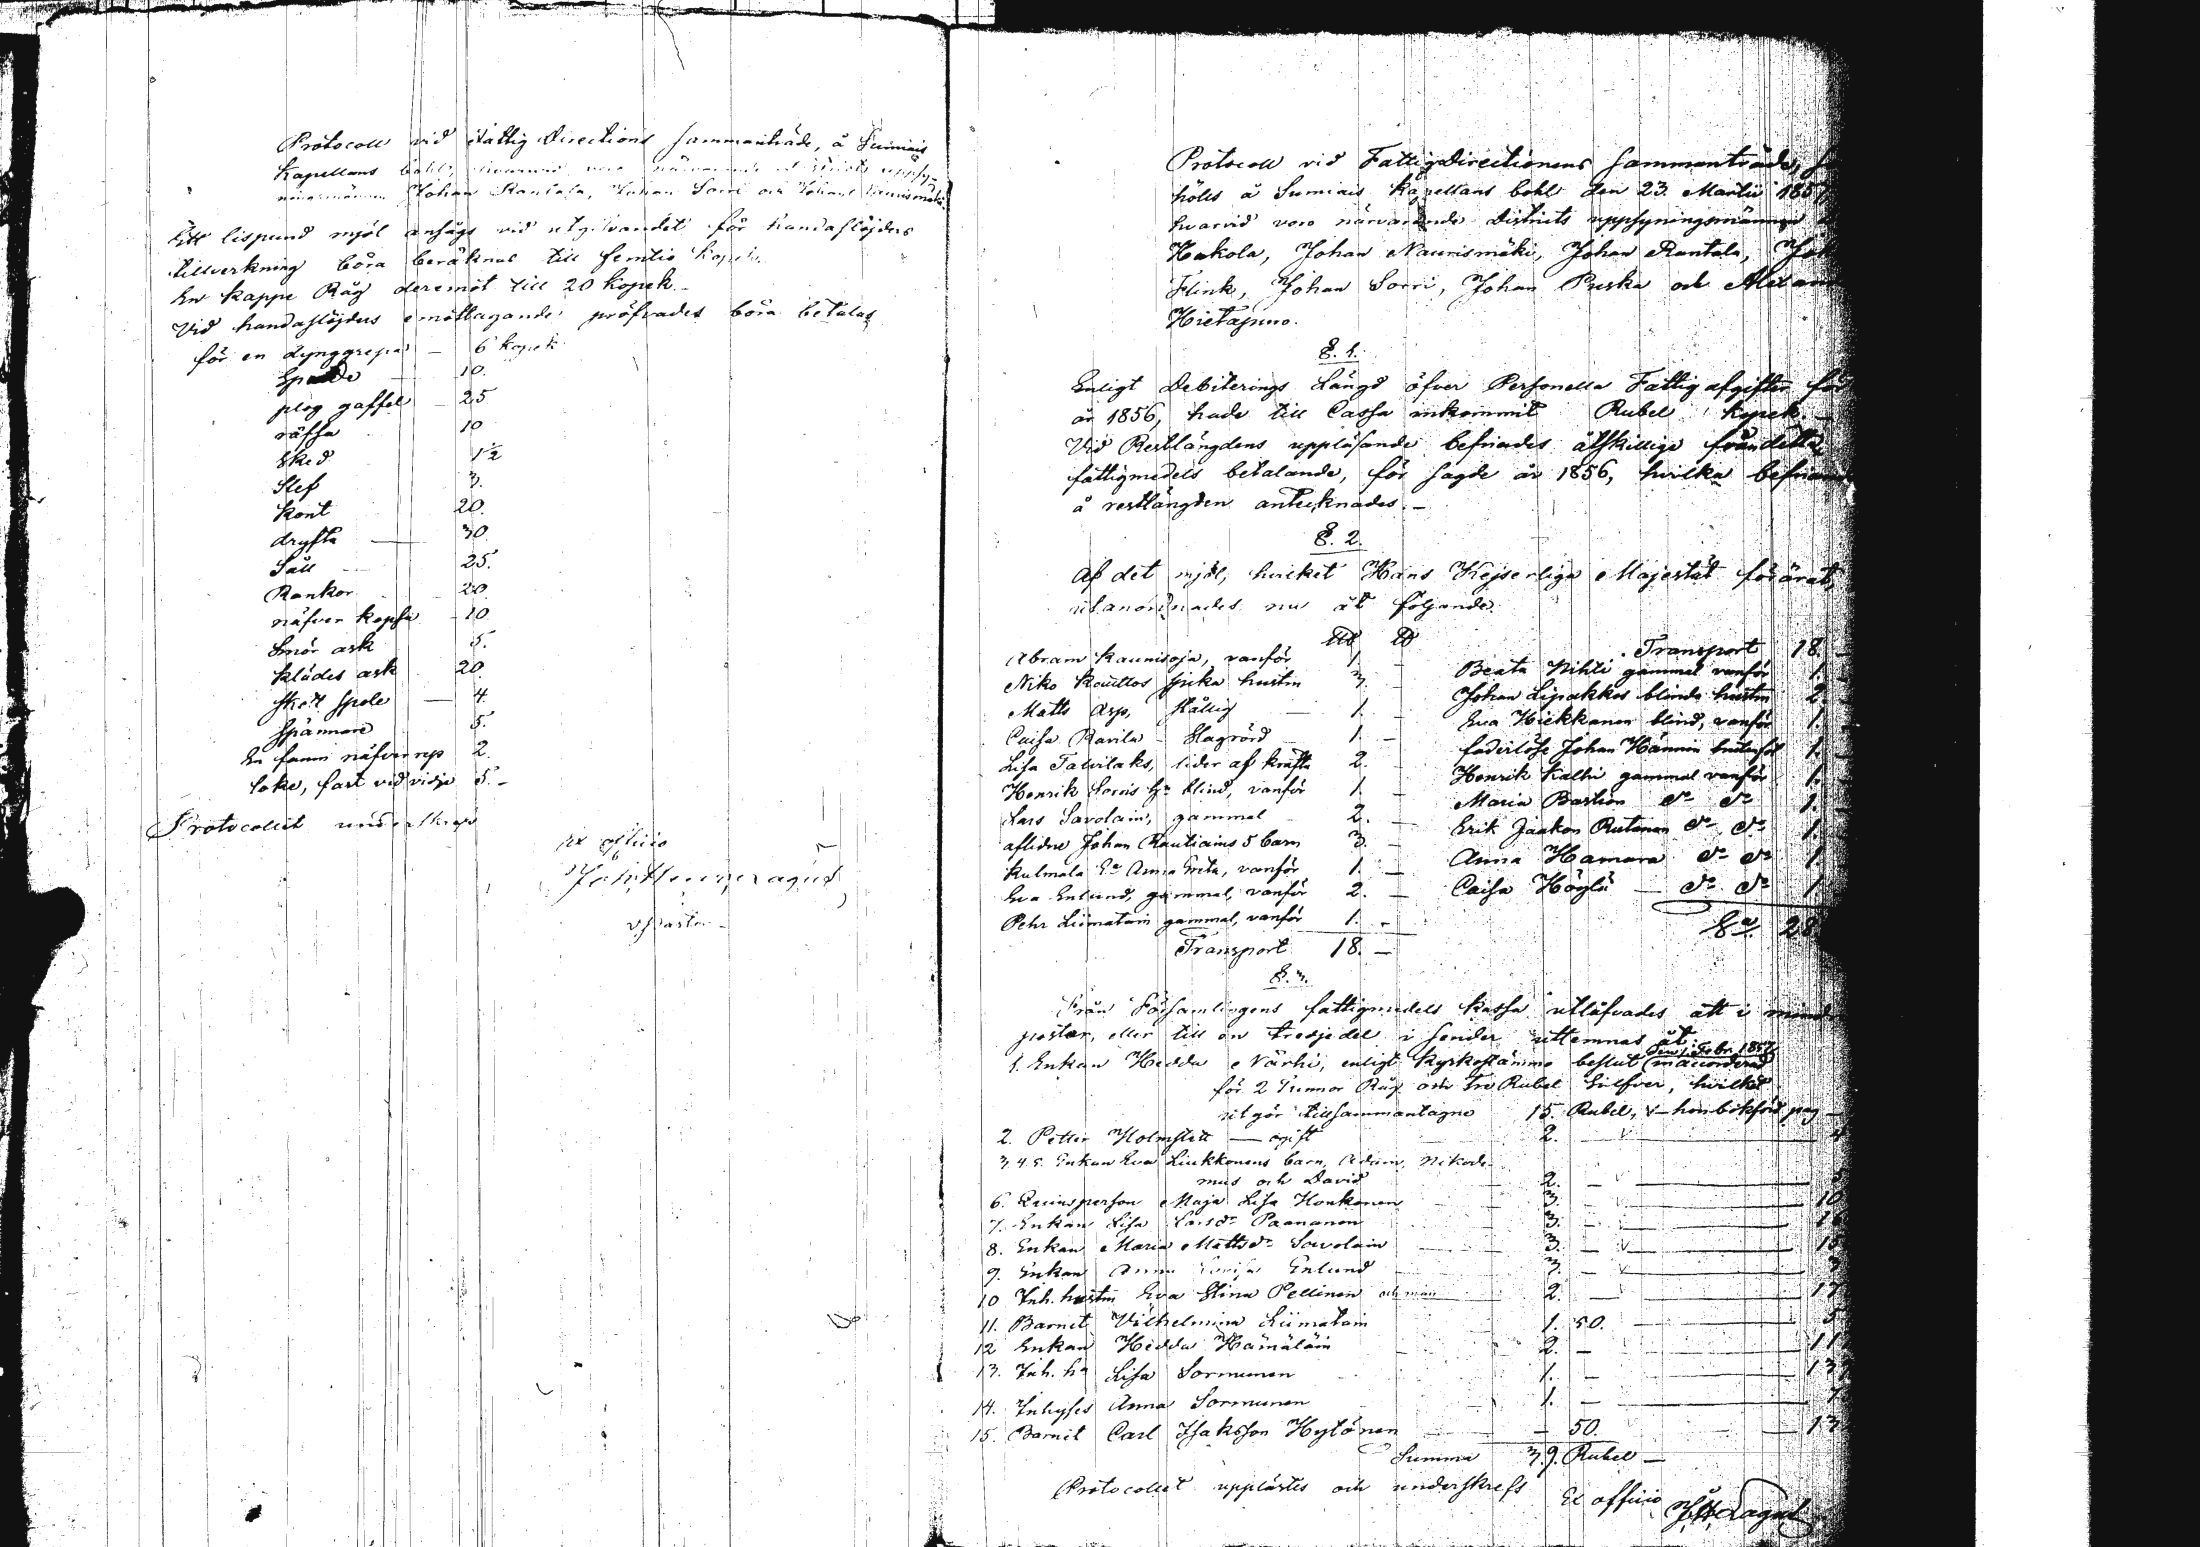 Protocoll vid Fattig Directions sammanträde, å Sumiais
Kapellans bohl, närvarande uppsy-
ningsmännen Johan Rantala, Johan Sorri och Johan Naurismäki.
Ett lispund mjöl ansågs vid utgifvandet för handaslöjders
tillverkning böra beräknas till femtio kopek.
En kappe Råg deremot till 20 kopek.
Vid handaslöjders emottagande pröfvades böra betalas
för en dynggrepa — 6 kopek
Spade — 10.
plog gaffel — 25
räfsa 10
sked 1½
Slef 3.
Kont 20.
dryfta — 30
Såll 25.
Rankor 20
näfver kopsa 10
Smör ask 5.
klädes ask 20.
sked spole — 4.
Spännare 5.
En famn näfver rep 2.
loke, fast vid vidje 5.-
Protocollet underskrefs
ex officio
v. pastor
Protocoll vid Fattigdirectionens sammanträde,
hölls å Sumiais kapellans bohl den 23 Martii 1857,
hvarvid voro närvarande districts uppsyningsmännen
Hakola, Johan Naurismäki, Johan Rantala, Joh
Flink, Johan Sorri, Johan Puska och Alexan
Hietajuno.
§. 1.
Enligt Debiterings Längd öfver Personella Fattigafgifter för
år 1856, hade till Cassa inkommit Rubel kopek.-
Vid Restlängdens uppläsande befriades åtskillige från detta
fattigmedels betalande, för sagde år 1856, hvilka befriande
å restlängden antecknades.-
§. 2.
Af det mjöl, hvilket Hans Kejserliga Majestät förärat,
utanordnades nu åt följande.
Abram Kaunisoja, vanför 1. -
Niko Kauttos sjuka hustru 3. -
Matts Asp, 1. -
Caisa Ravila Slagrörd 1. -
Lisa Talvilaks, lider af kräfta 2.
Henrik Sorris hu blind, vanför 1. -
Lars Savolain, gammal 2. -
aflidne Johan Rautiains 5 barn 3. -
Kulmala Anna Greta, vanför 1. -
Eva Enlund, gammal, vanför 2. -
Pehr Liimatain gammal, vanför 1. -
Transport 18. -
Transport 18. -
Beata Nihti gammal vanför 1.
Johan Lipakkos blinda hustru 2.
Eva Hiekkanen blind, vanför 1.
faderlöse Johan Hännin 1.
Henrik Kalli gammal vanför 1.
Maria Bastion do do 1.
Erik Jaakon Rutanen do do 1.
Anna Hamara do do 1.
Caisa Höylä — do do 1
Sa 28
§. 3.
Från Församlingens fattigmedels kassa utlåfvades att i mindre
poster, eller till en tredjedel i sender uttemnas åt:
1. Enkan Hedda Närhi, enligt Kyrkostämmo beslut den 1 Febr. 1857
för 2 Tunnor Råg och tre Rubel Silfver, hvilket
utgör tillsammantagne 15 Rubel, hon bokförd pag
2. Petter Holmstett — ogift 2.
3. 4. 5. Enkan Eva Liukkonens barn, Adam, Nikode-
mus och David 2. -
6. Qvinsperson Maja Lisa Honkonen 3. - 10
7. Enkan Lisa Larsdr Paananen 3. -
8. Enkan Maria Mattsdr Savolain 3. -
9. Enkan Anna Enlund 3. -
10 Inh. hustru Eva Stina Pellinen och man 2. -
11. Barnet Vilhelmina Liimatain 1. 50.
12 Enkan Hedda Hämäläin 2. -
13. Inh. hu Lisa Sormunen 1. -
14. Inhyses Anna Sormunen 1. -
15. Barnet Carl Isaksson Hytönen - 50.
Summa 39. Rubel -
Protocollet upplästes och underskrefs Ex officio